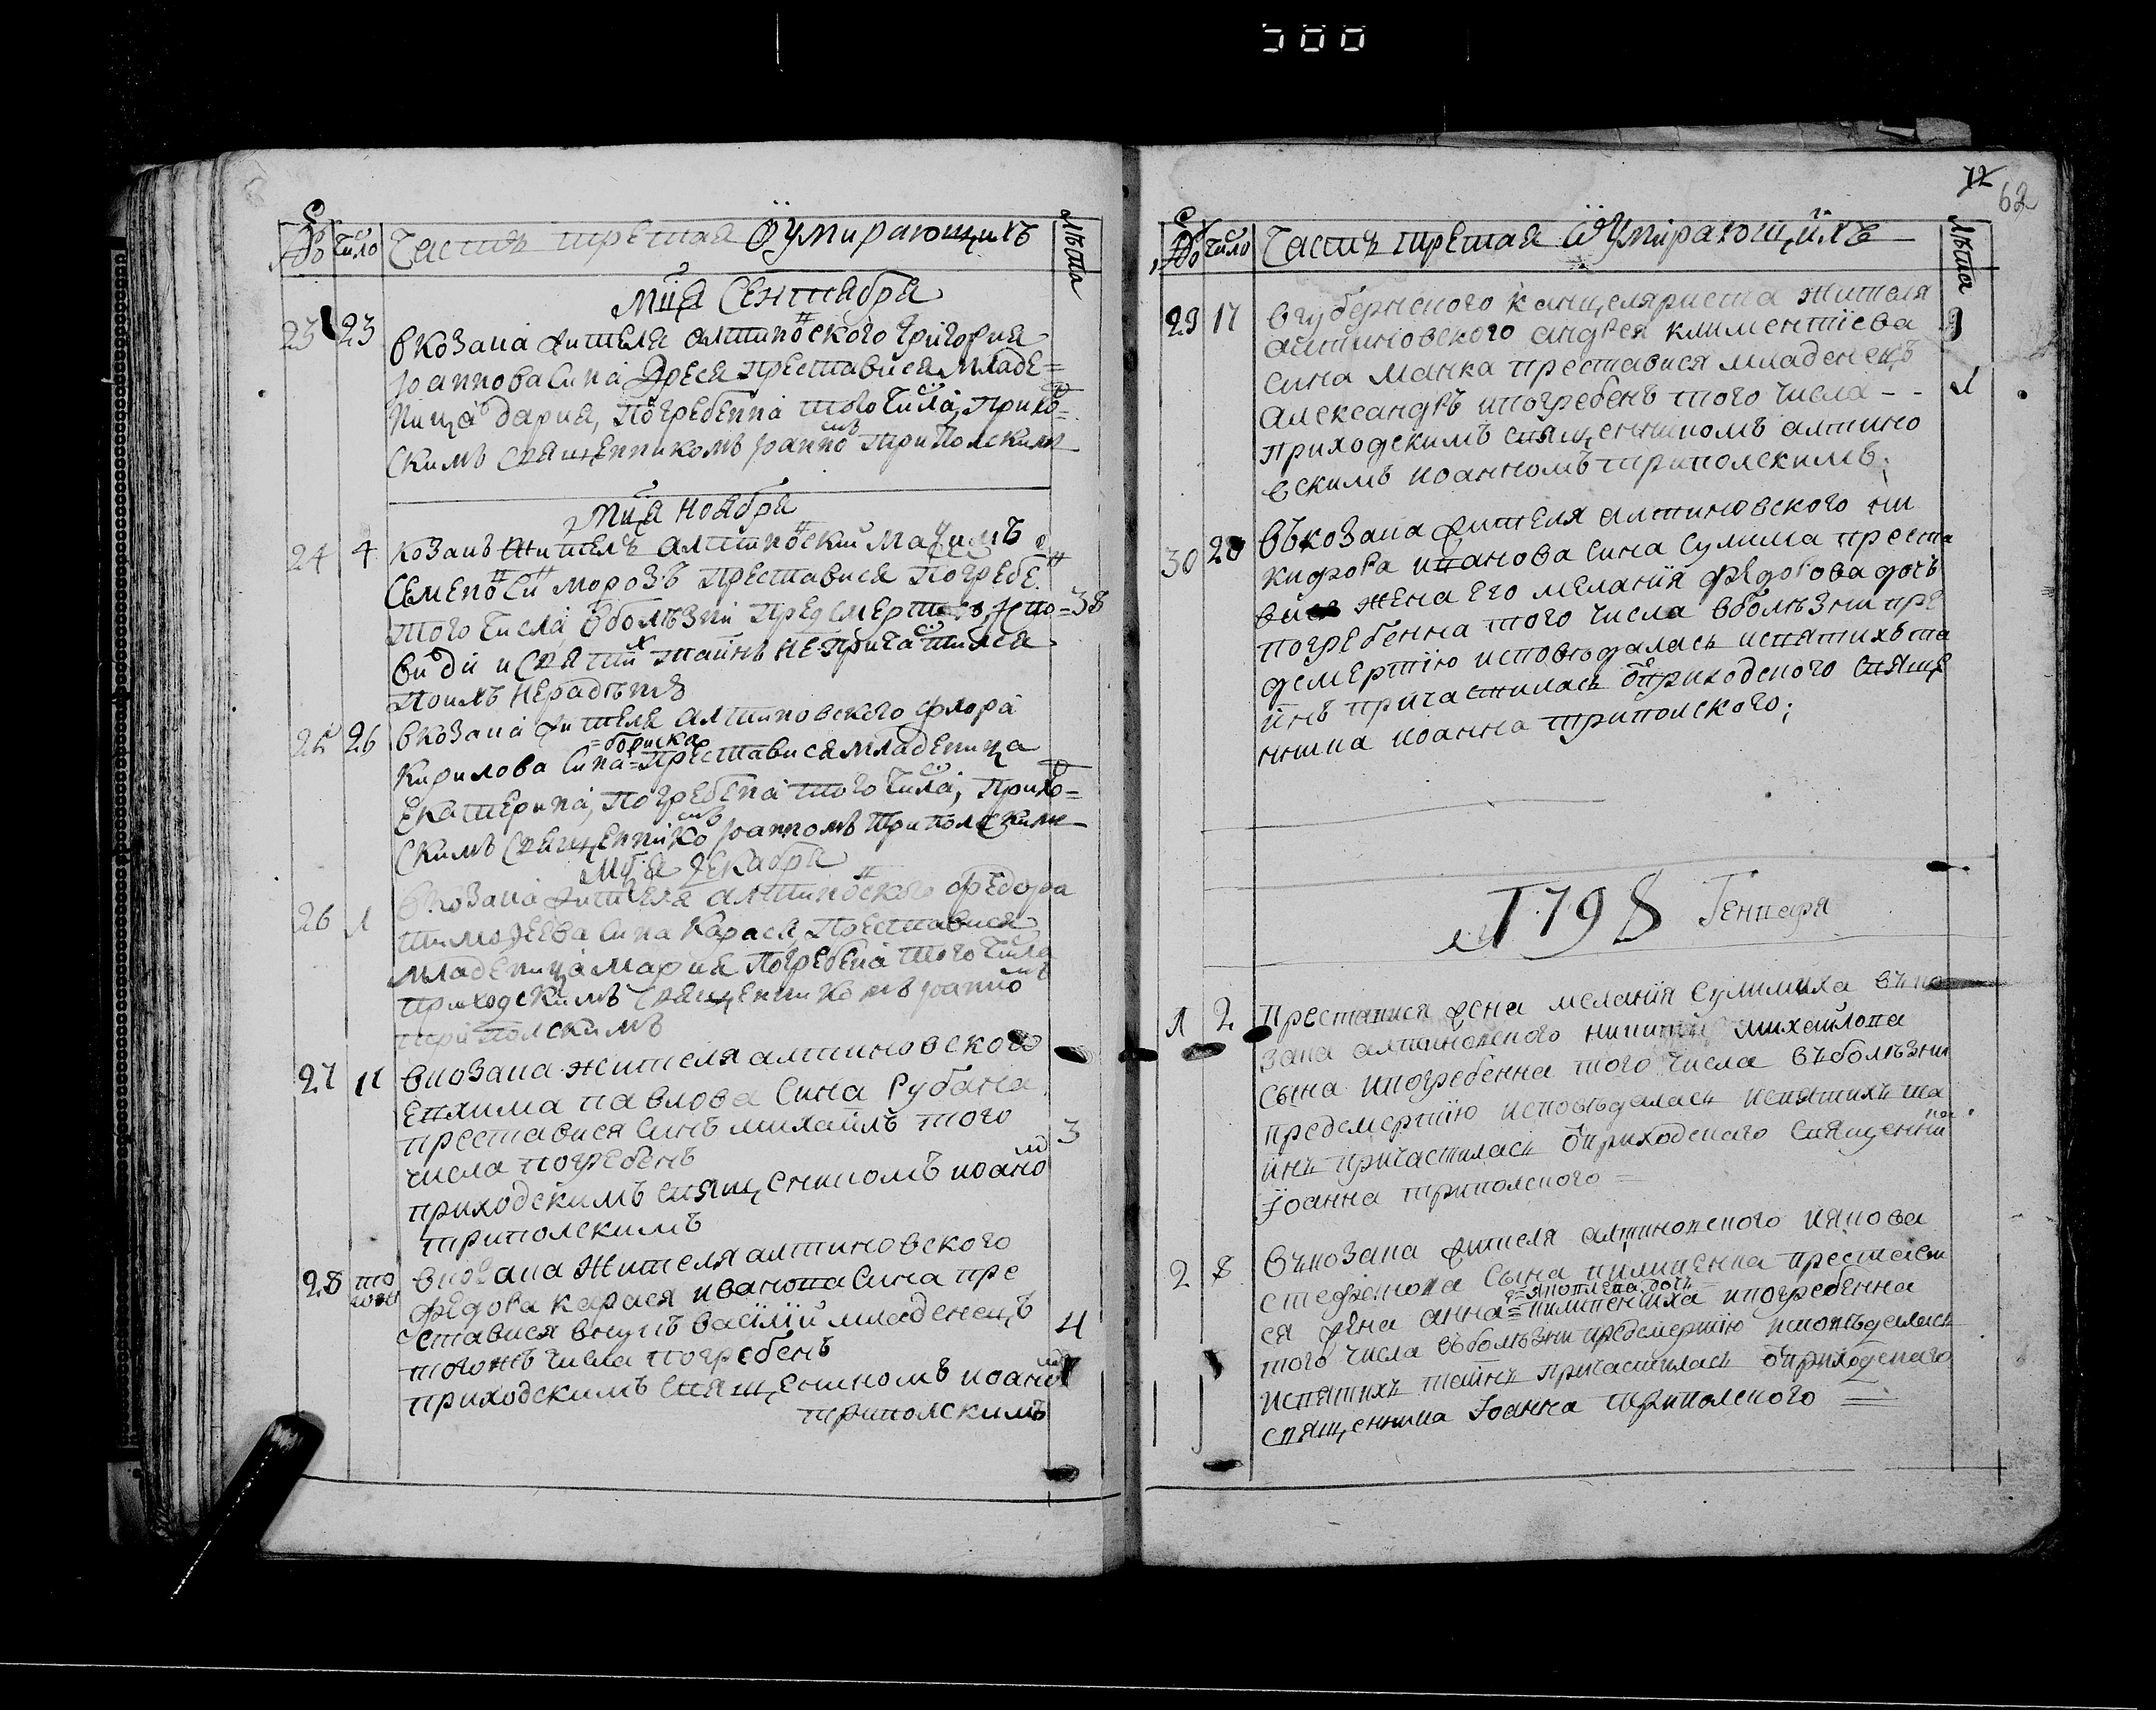 500
Число Часть третая Ѿ умирающихъ лѣта
Мца Сентября
23 23 в козака жителя алтиновского григория
иоаннова сина Дреся преставися младе=
ница дария, погребенна того числа, прихо=
скимъ священникомъ иоанномъ триполскимъ
Мца ноября
24 4 козакъ житель алтиновский мазимъ
семеновъ синъ морозъ преставися погребенъ
того числа в болѣзни пред смертию испо= 38
види и святих тайнъ не причастился
по ихъ нерадѣнию
25 26 в козака жителя алтиновского флора
=бориска
кирилова сина=преставися младеница
екатерина, погребена того числа, прихо=
скимъ священникомъ иоанномъ триполскимъ
Мца декабря
26 1 в козака жителя алтиновского федора
тимофеева сина карася, преставися
младеница мария погребена того числа
приходскимъ священникомъ иоанномъ
триполскимъ
27 11 в козака жителя алтиновского
евхима павлова сина рубана
преставися синъ михаилъ того 3
числа погребенъ
приходскимъ священикомъ иоаномъ
триполскимъ
28 того в козака жителя алтиновского
федора карася иванова сина пре
ставися внукъ василий младенецъ 4
того жъ числа погребенъ
приходскимъ священикомъ иоаномъ
триполскимъ
12 62
Число Часть третая Ѿ умирающихъ лѣта
29 17 в губернского канцеляриста жителя
алтиновского андрея климентиева
сина манка преставися младенецъ
александръ и погребенъ того числа - - 1
приходскимъ священникомъ алтино
вскимъ иоанномъ триполскимъ;
30 28 въ козака жителя алтиновского ни
кифора иванова сина сулима преста
вися жена его мелания федорова дочь
погребенна того числа в болѣзни пре
дсмертию исповѣдалась и святихъ та
инъ причастилась Ѿ приходского свяще
нника иоанна триполского;
1798 Генваря
1 2 преставися жена мелания сулимиха въ ко
зака алтиновского никити михайлова
сына и погребенна того числа въ болѣзни
предсмертию исповѣдалась и святихъ та
инъ причастилась Ѿ приходского священни
ка
Іоанна триполского =
2 8 въ козака жителя алтиновского иякова
стефанова сына пилипенка престави
=яковлева дочь
ся жена анна=пилипениха и погребенна
того числа въ болѣзни предсмертию исповѣдалась
и святихъ тайнъ причастилась Ѿ приходского
священника Іоанна триполского =